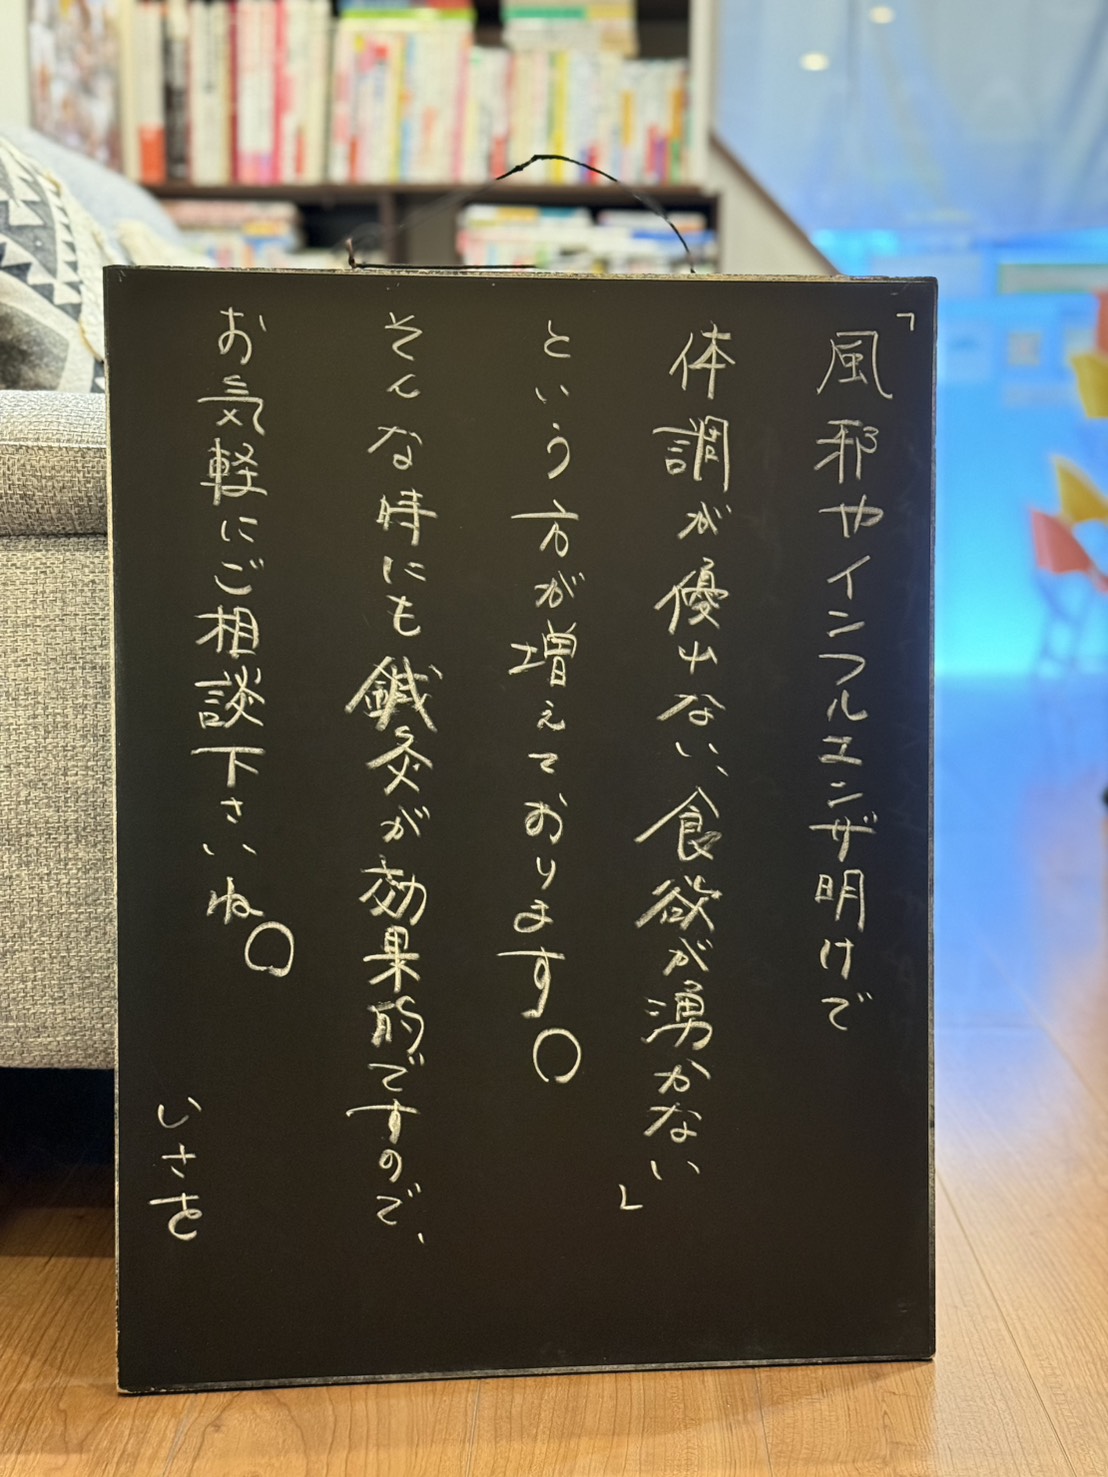 「風邪やインフルエンザ明けで
体調が優れない、食欲が湧かない」
という方が増えております。
そんな時にも鍼灸が効果的ですので、
お気軽にご相談下さいね。
いさを